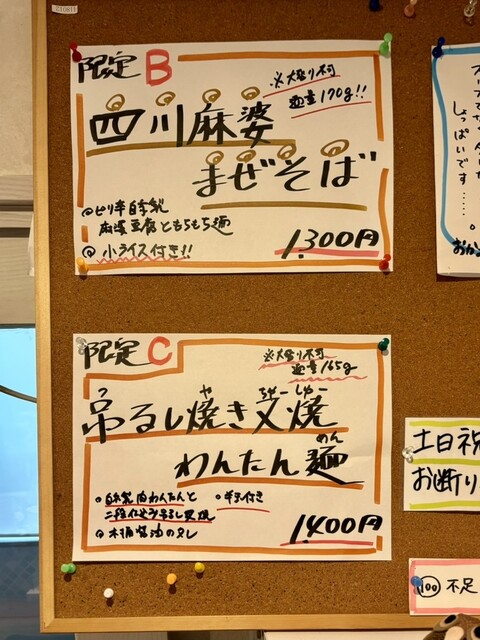 限定B
※大盛り不可
麺量170g!!
四川麻婆
まぜそば
◎ピリ辛自家製
麻婆豆腐ともちもち麺
◎小ライス付き!!
1.300円
限定C
※大盛り不可
麺量165g
つ や ちゃーしゅー
吊るし焼き叉焼
めん
わんたん麺
◎自家製肉わんたんと
二段仕込み吊るし叉焼
◎
付き
◎
醤油の
1.400円
しょっぱいです……。
土日祝
お断り
100 不足